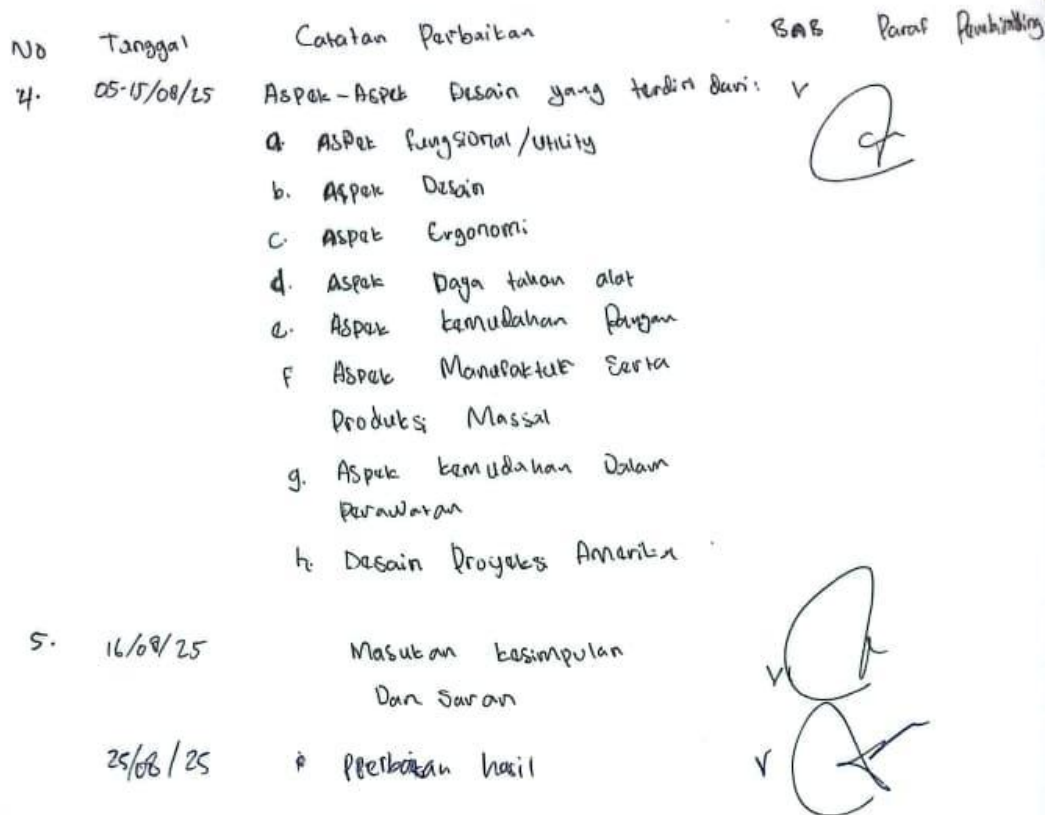 No Tanggal Catatan Perbaikan BAB Paraf Pembimbing
4. 05-15/08/25 Aspek-Aspek Desain yang terdiri dari: V
a. Aspek fungsional/Utility
b. Aspek Desain
c. Aspek Ergonomi
d. Aspek Daya tahan alat
e. Aspek kemudahan
f Aspek Manufaktur Serta
Produksi Massal
g. Aspek kemudahan Dalam
Perawatan
h. Desain Proyeksi Amerika
5. 16/08/25 Masukan kesimpulan V
Dan Saran
25/08/25 hasil V